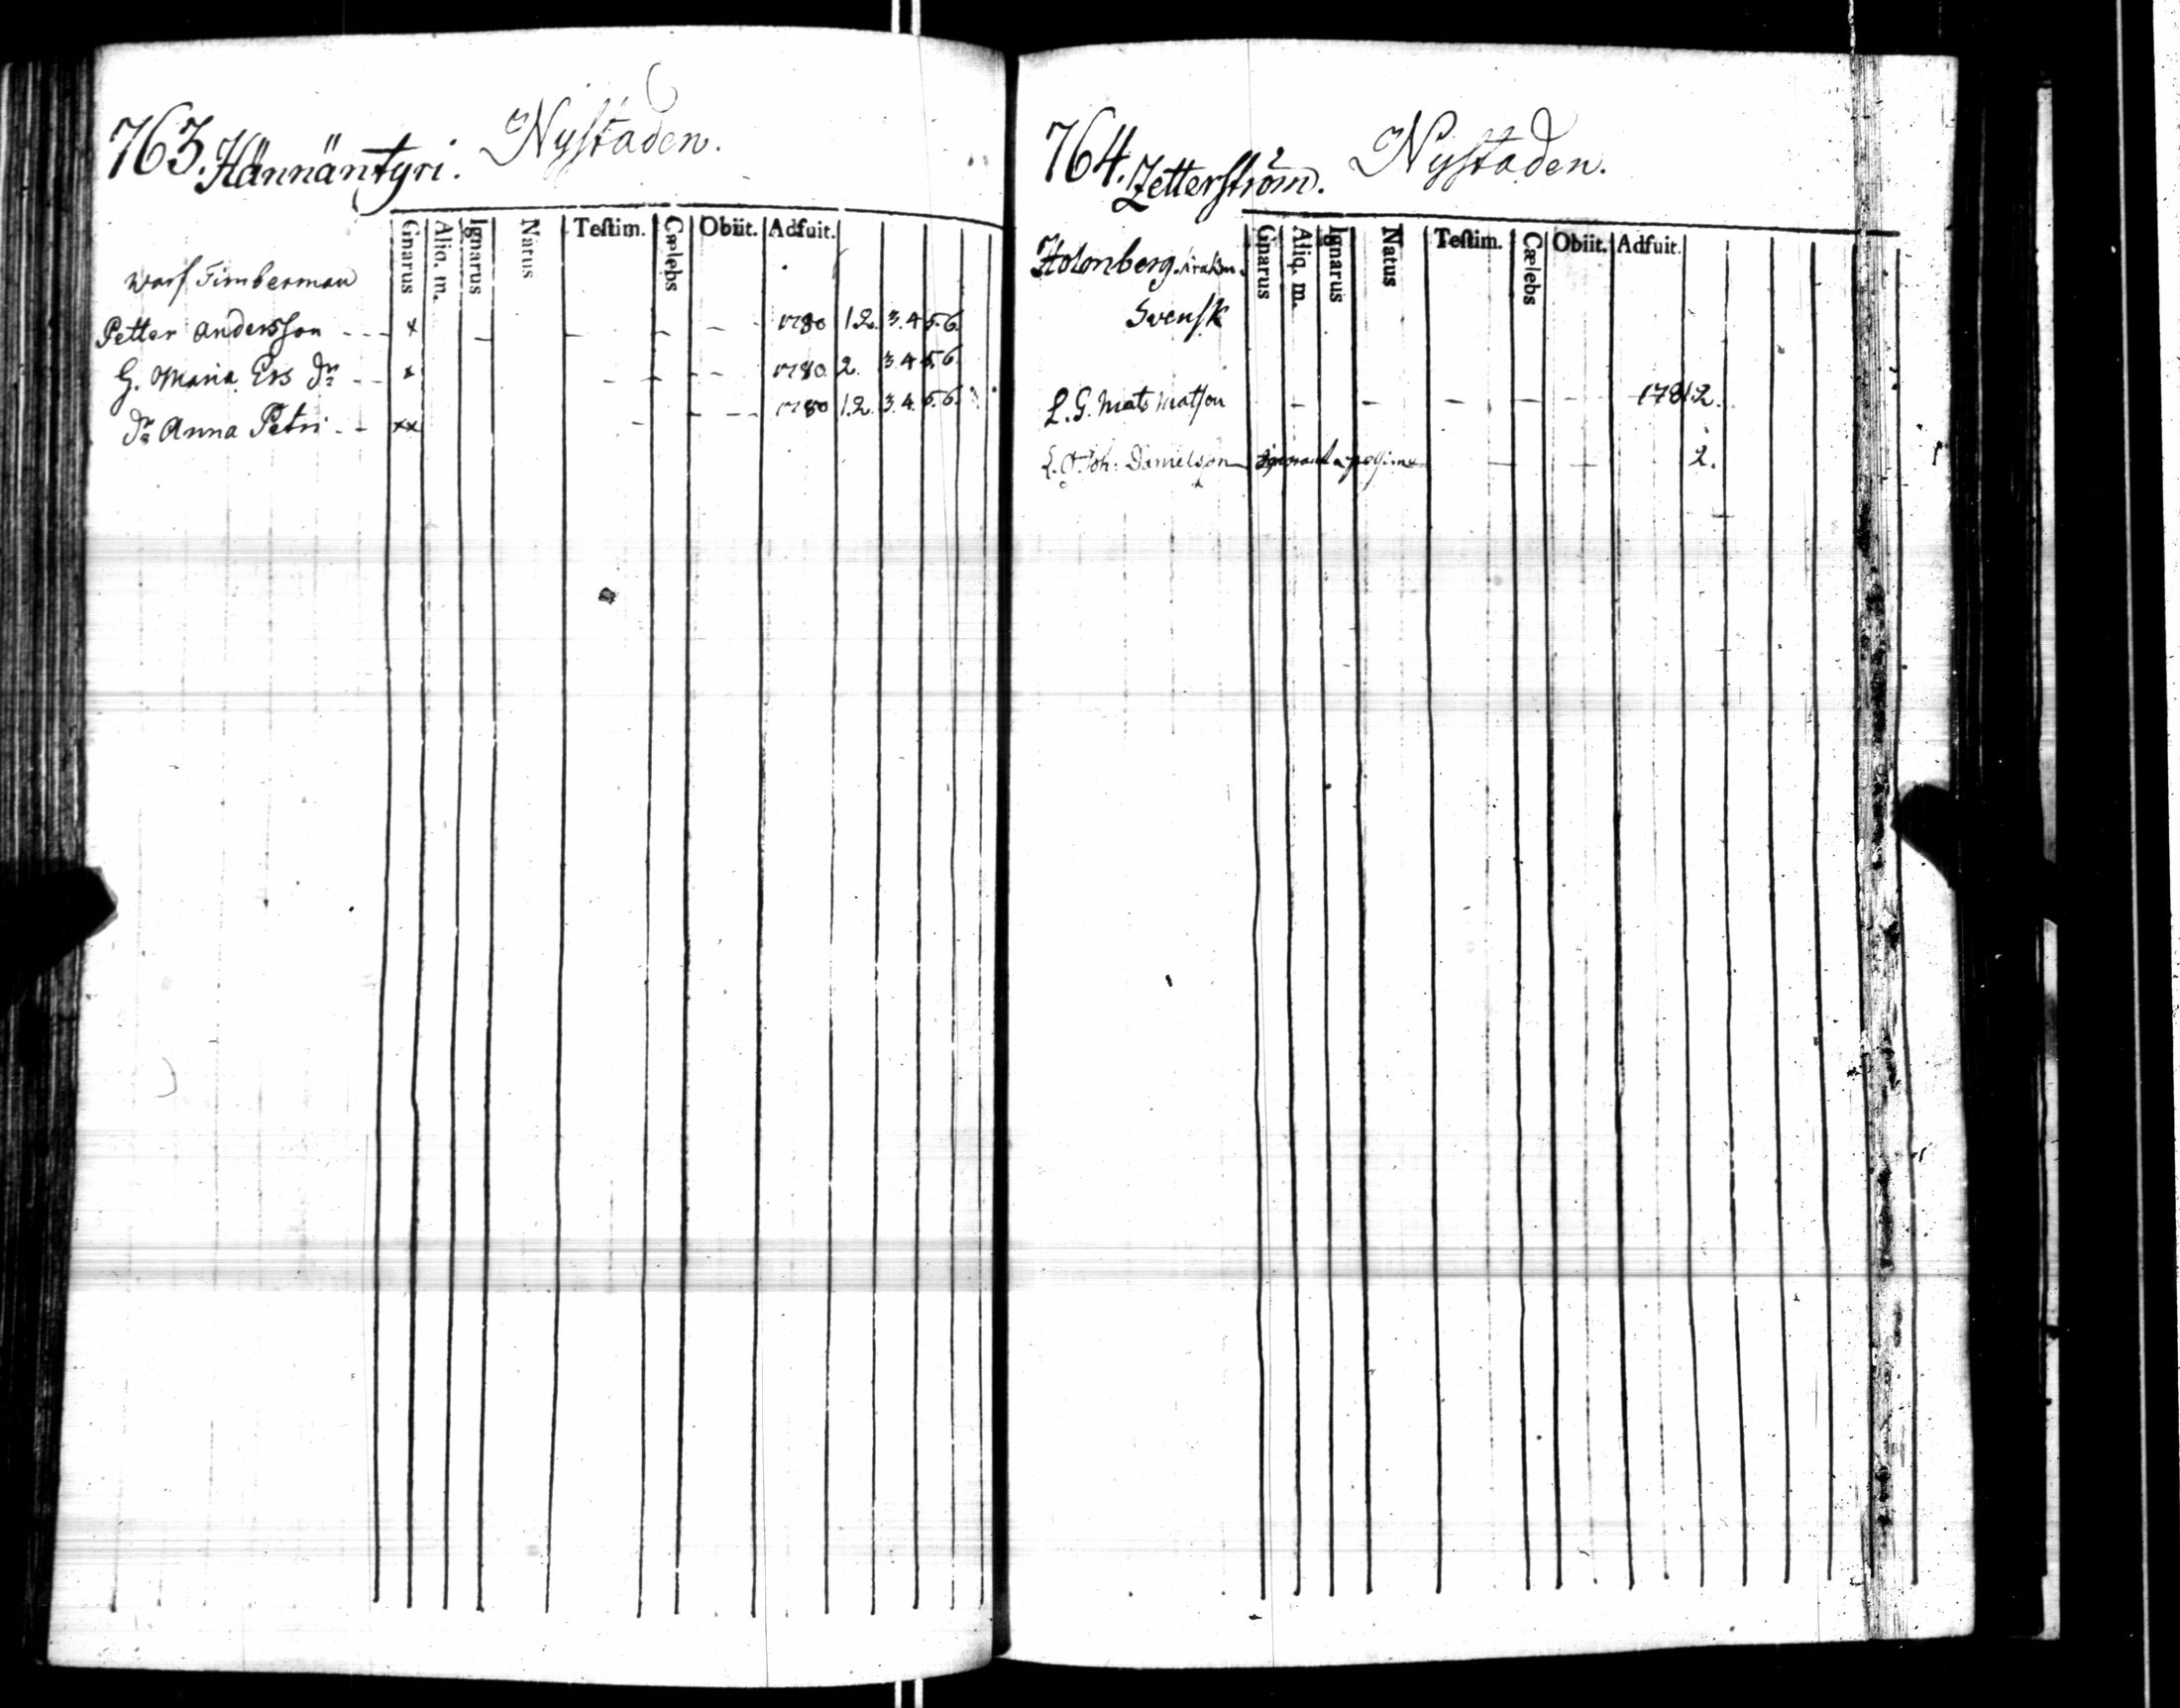 763. Hännäntyri. Nystaden.
Gnarus Aliq. m. Ignarus Natus Testim. Cælebs Obiit. Adfuit.
warf Timberman
Petter Andersson - - - x - - - - - 1780 1.2. 3.4 5.6.
H. Maria Ers dr - - x - - - - 1780 2. 3.4 5.6.
dr Anna Petri - - xx - - - - 1780 1.2. 3.4. 5.6.
764. Zetterström. 2 Nystaden.
Gnarus Aliq. m. Ignarus Natus Testim. Cælebs Obiit. Adfuit.
Holmberg
Svensk
L. G. Mats Matson - - - - - - 1781.2.
L. G. Joh: Danielson - - - 2.